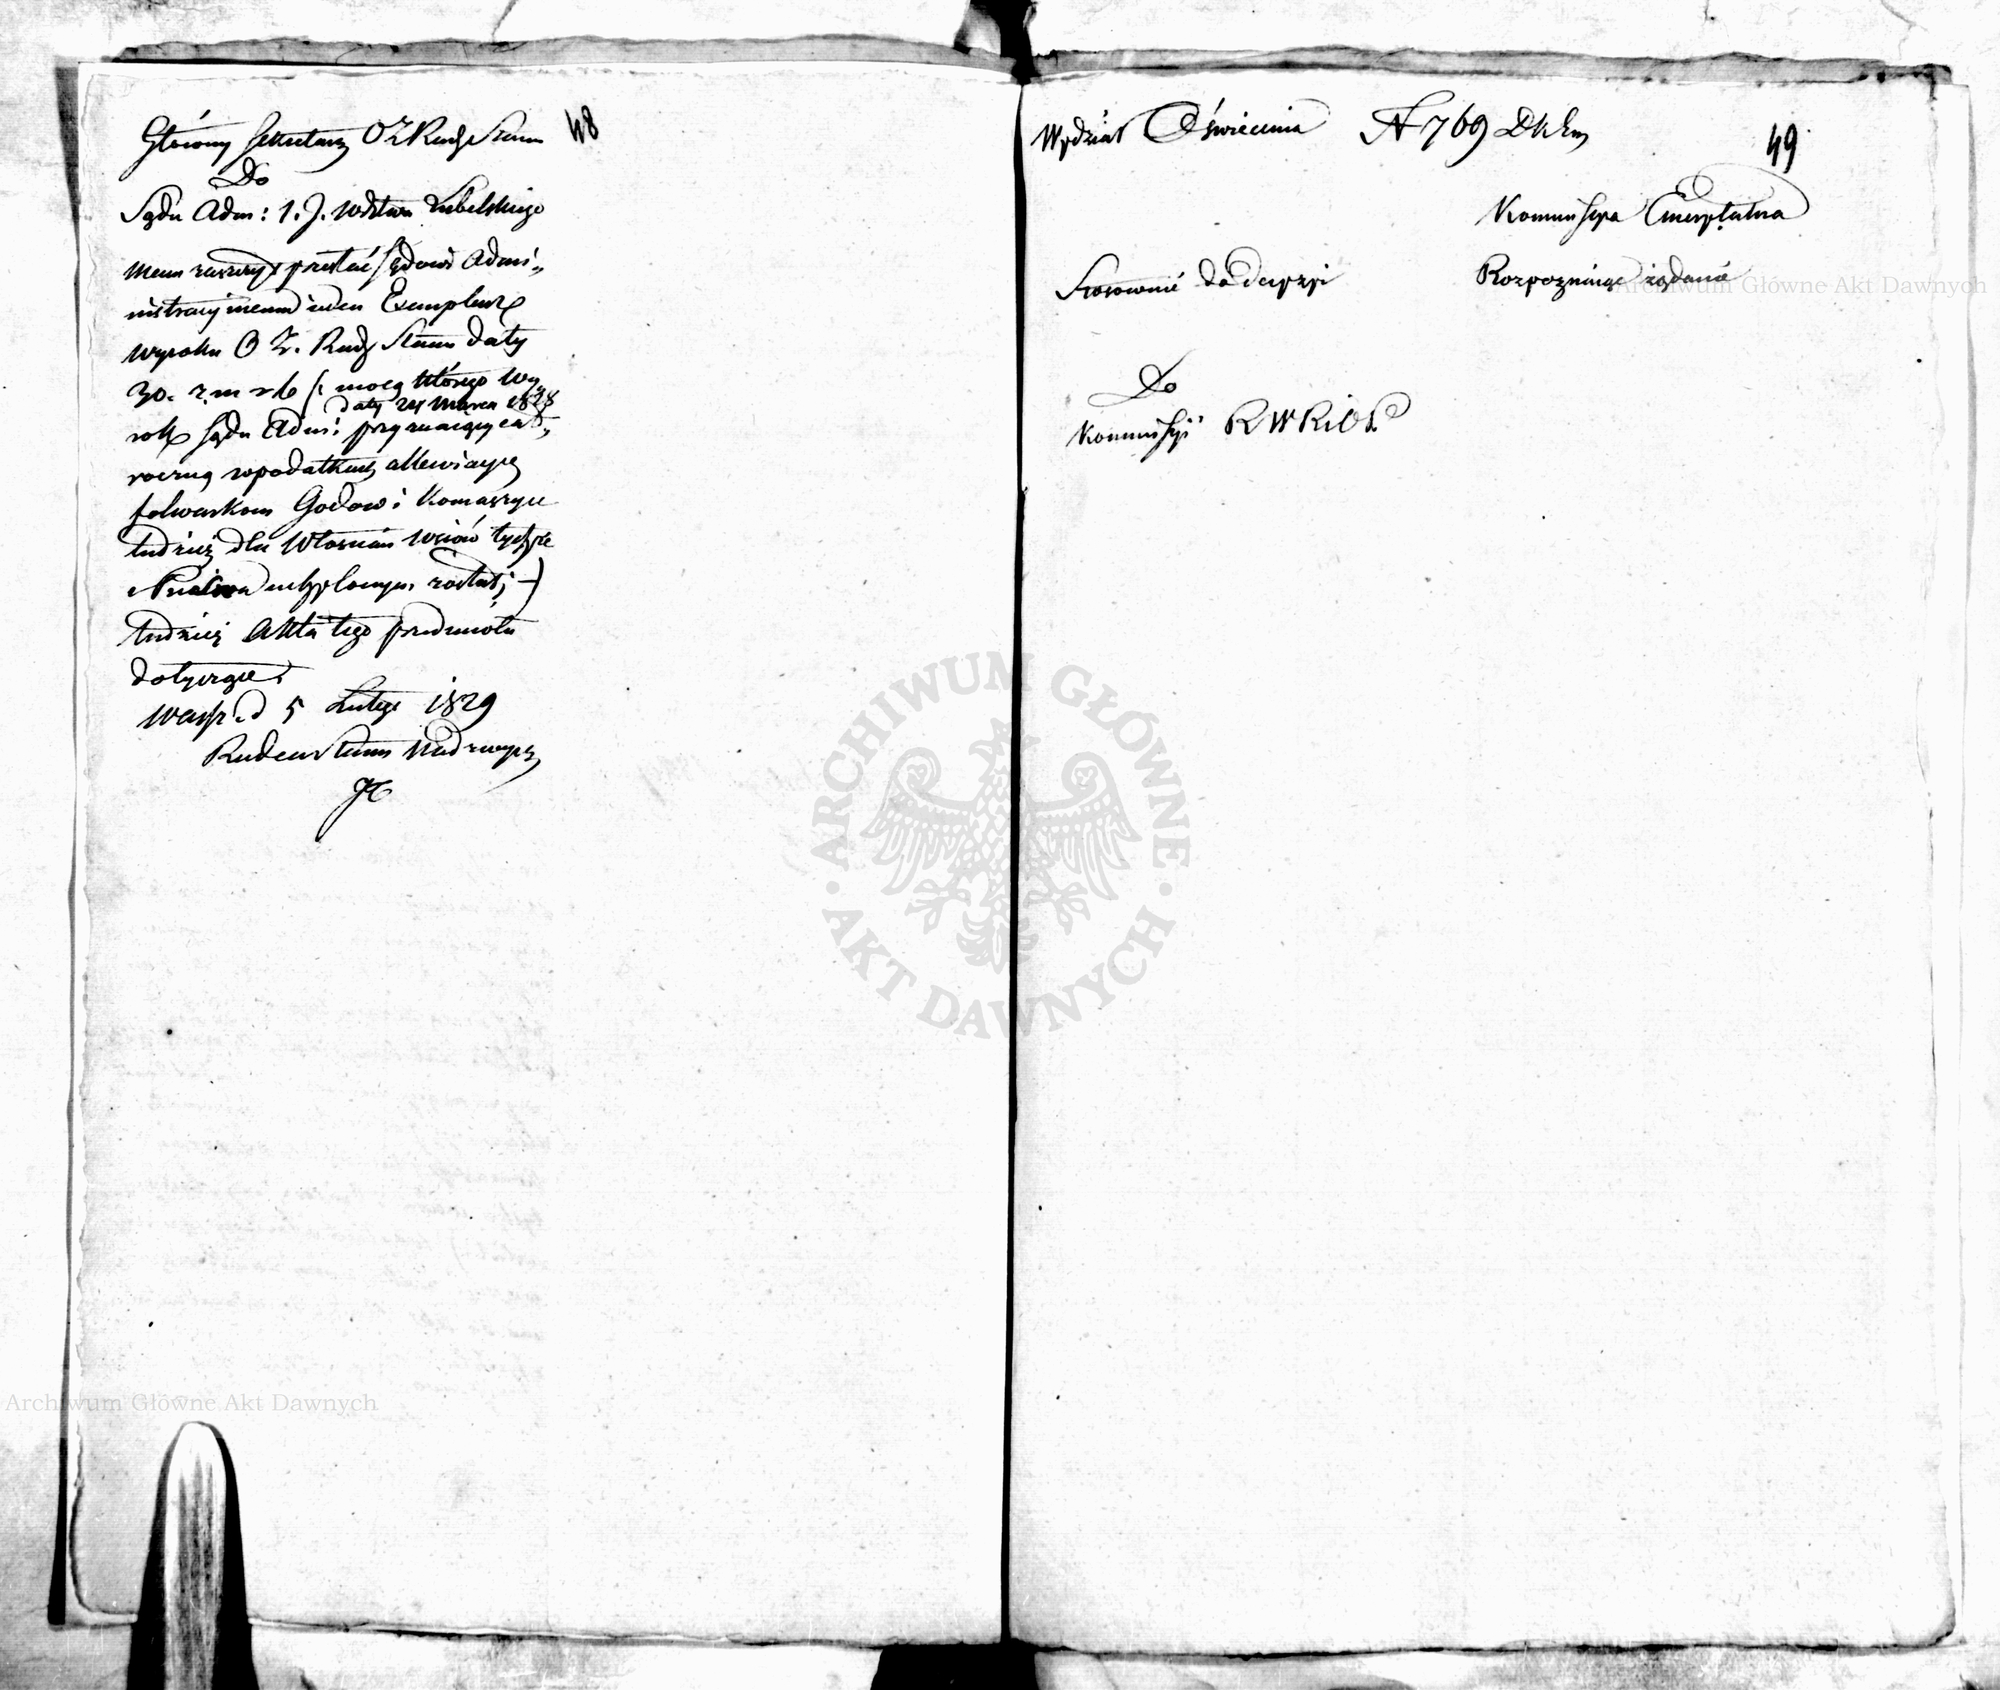 48
Główny Sekretarz O Z Rady Stanu
Do
Sądu Adm: 1. J. Wdztwa Lubelskiego
Mam zaszczyt przesłać Sądowi Admi-
nistracyjnemu ieden Exemplarz
wyroku O Z. Rady Stanu daty
30. z. m. r b (: mocą którego wy
daty 24 Marca 1828
rok Sądu Adm: przyznaiący
roczną w podatkach allewiacyę
folwarkom Godow i Komaszyce
tudzież dla Włościan wsiów tychże
uchylonym został :)
tudzież Akta tego przedmiotu
dotyczące.
Warsz. d 5 Lutego 1829
Radca Stanu Nadzwycz
49
Wydział Oświecenia N 769 DKEm
Kommissya Emerytalna
Stosownie do decyzyi
Rozpoznając żądania
Do
Kommissyi R W R i O P
Archiwum Główne Akt Dawnych
ARCHIWUM GŁÓWNE
AKT DAWNYCH
Archiwum Główne Akt Dawnych